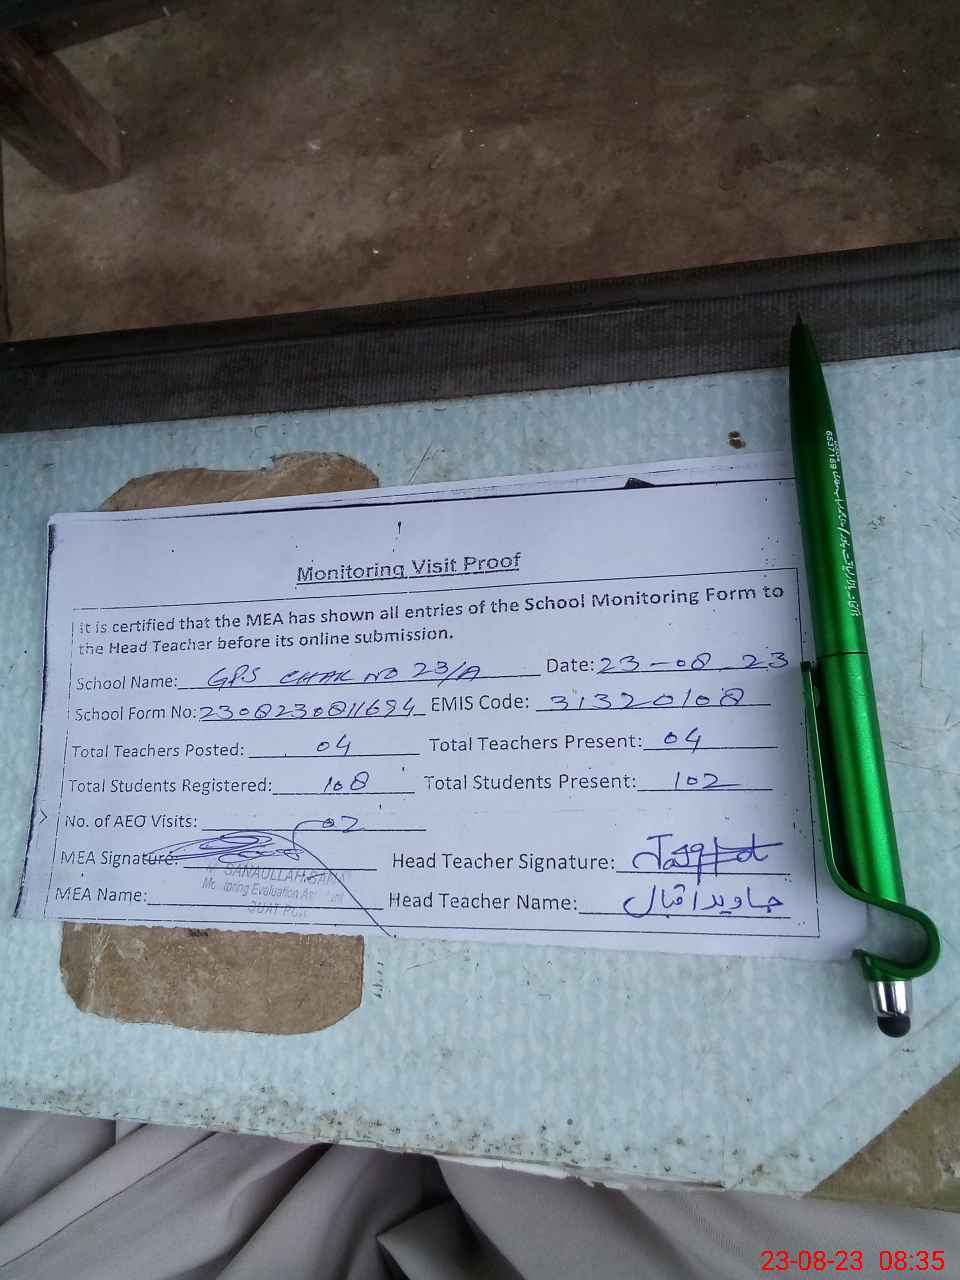 Monitoring Visit Proof
It is certified that the MEA has shown all entries of the School Monitoring Form to
the Head Teacher before its online submission.
School Name: GPS CHAK NO 23/A Date: 23-08-23
School Form No: 2308230811694 EMIS Code: 31320108
Total Teachers Posted: 04 Total Teachers Present: 04
Total Students Registered: 108 Total Students Present: 102
No. of AEO Visits: 02
MEA Signature: Head Teacher Signature:
SANAULLAH
Monitoring Evaluation
MEA Name: Head Teacher Name: جاوید اقبال
6537169
23-08-23 08:35